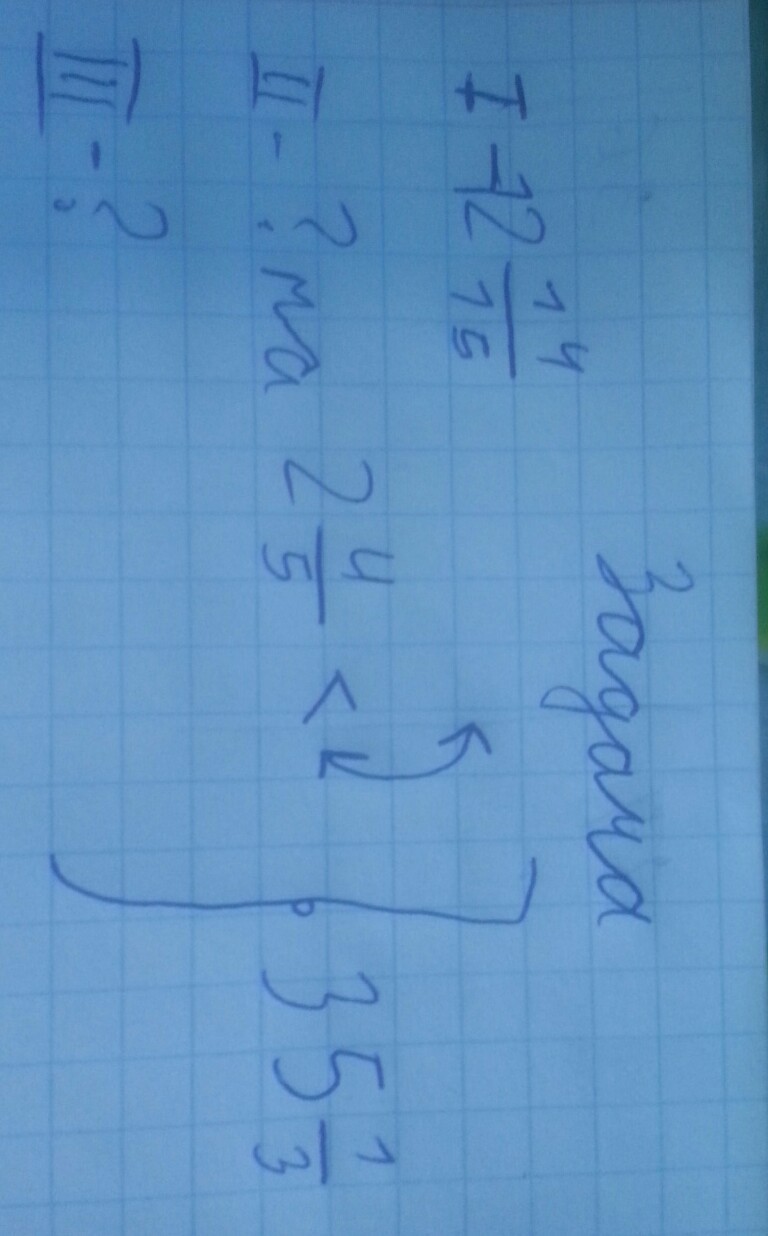 Задача
I - 12 14/15
II - ? на 2 4/5 < 35 1/3
III - ?